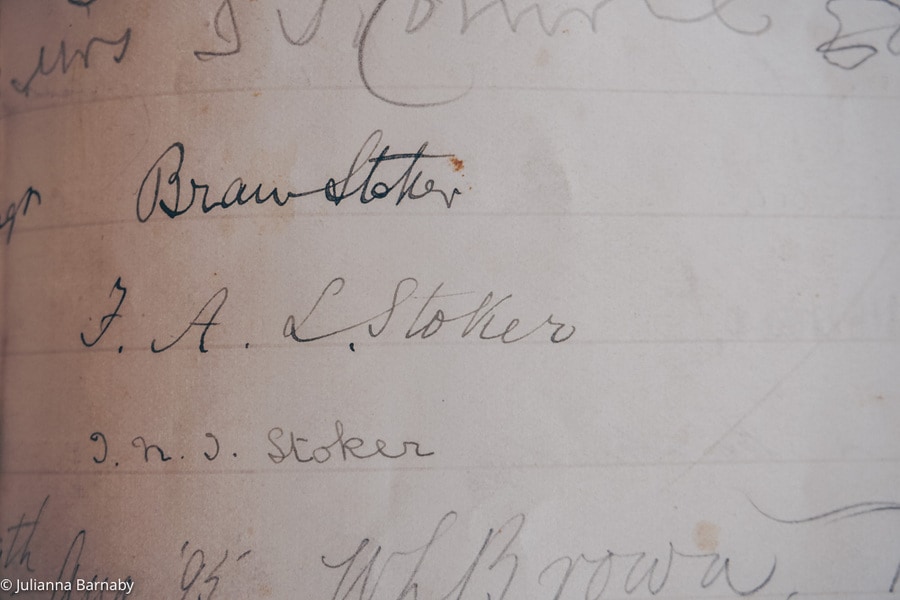 Mrs
Bram Stoker
F. A. L. Stoker
I. N. T. Stoker
th Aug '95 W L Brown
© Julianna Barnaby